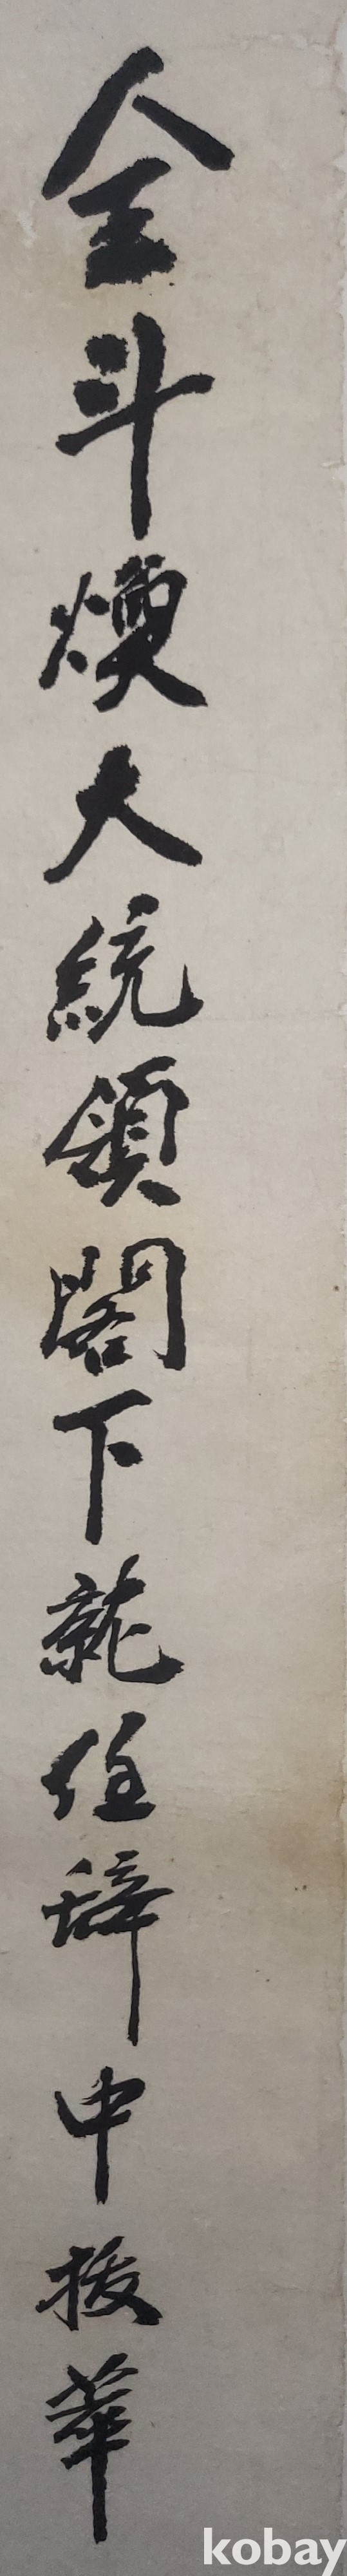 全斗煥大統領閣下就任辞中抜萃
kobay